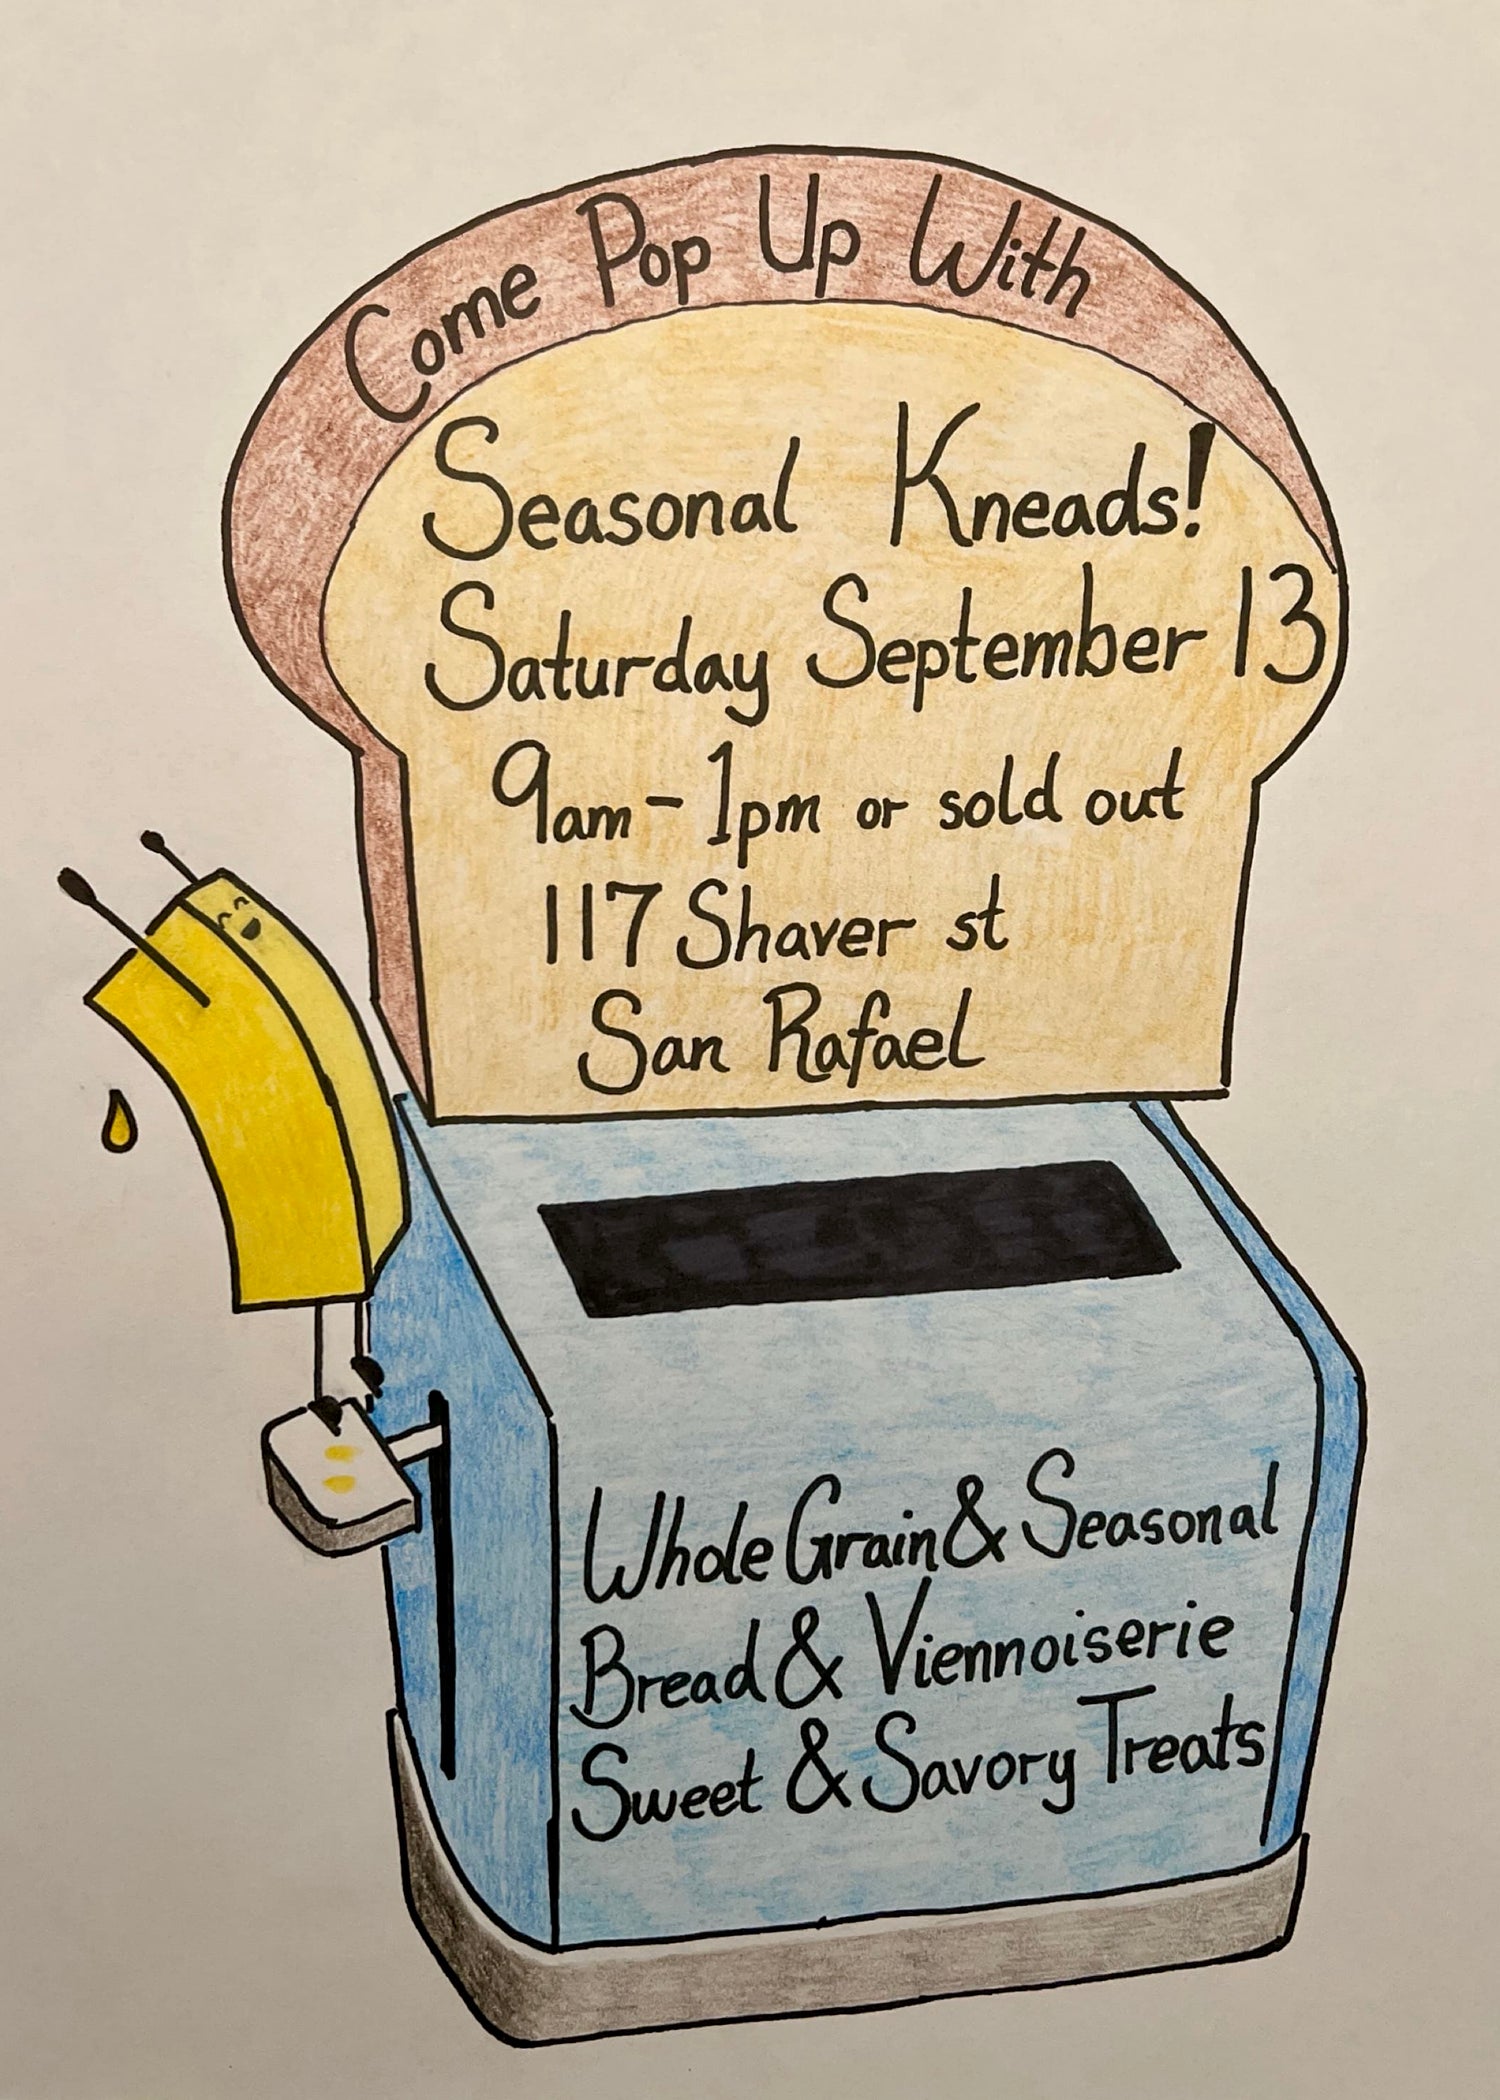 Come Pop Up With
Seasonal Kneads!
Saturday September 13
9am-1pm or sold out
117 Shaver st
San Rafael
Whole Grain & Seasonal
Bread & Viennoiserie
Sweet & Savory Treats